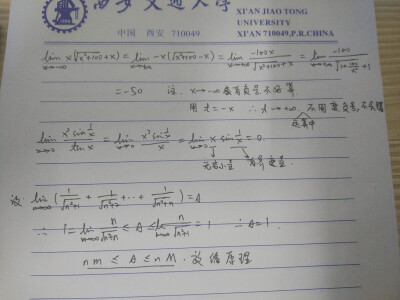 西安交通大学
XI'AN JIAO TONG
UNIVERSITY
中国 西安 710049 XI'AN 710049,P.R.CHINA
lim x→-∞ x(√(x²+100)+x) = lim x→+∞ -x(√(x²+100)-x) = lim x→+∞ -100x/(√(x²+100)+x) = lim x→+∞ -100/(√(1+100/x²)+1)
= -50 注: x→-∞
用 t=-x ∴ t→+∞,
lim x→0 x² sin(1/x)/tan x = lim x→0 x² sin(1/x)/x = lim x→0 x sin(1/x) = 0.
无穷小量 有界变量
设: lim n→∞ (1/√(n²+1) + 1/√(n²+2) + … + 1/√(n²+n)) = A
∴ 1 = lim n→∞ n/√(n²+n) ≤ A ≤ lim n→∞ n/√(n²+1) = 1 ∴ A=1.
nm ≤ A ≤ nM. 放缩原理